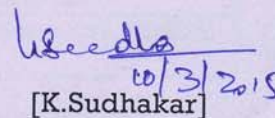 10/3/2015
[K.Sudhakar]